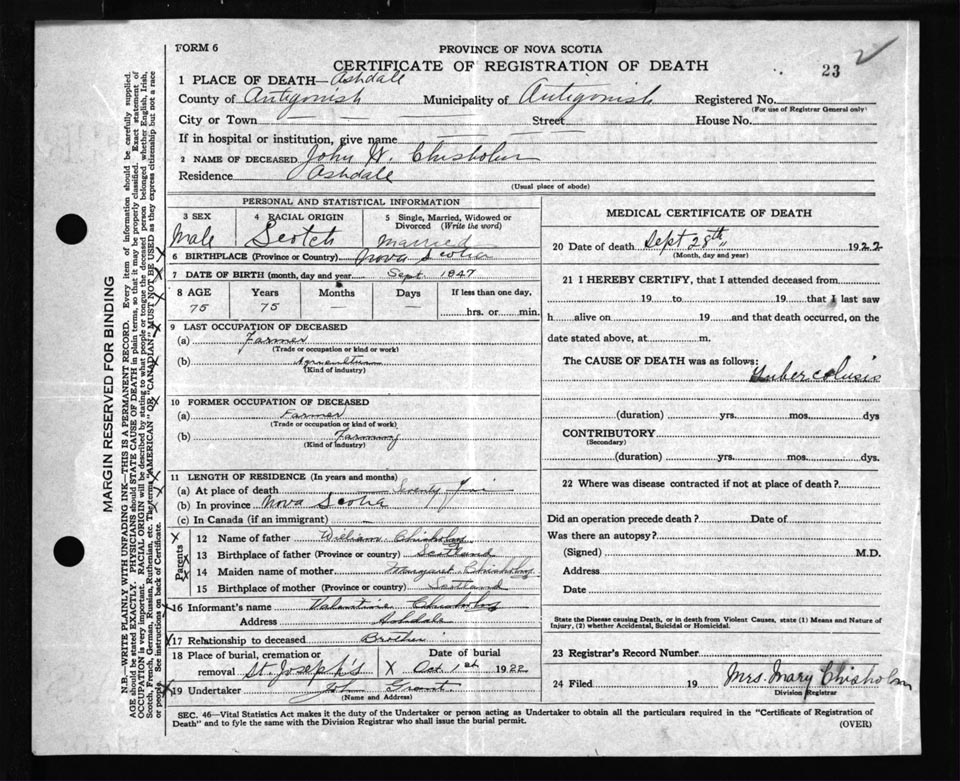 FORM 6
PROVINCE OF NOVA SCOTIA
CERTIFICATE OF REGISTRATION OF DEATH
23 2
1 PLACE OF DEATH—Ashdale
County of Antigonish Municipality of Antigonish Registered No.
(For use of Registrar General only)
City or Town Street House No.
If in hospital or institution, give name
2 NAME OF DECEASED John W. Chisholm
Residence Ashdale
(Usual place of abode)
PERSONAL AND STATISTICAL INFORMATION
3 SEX 4 RACIAL ORIGIN 5 Single, Married, Widowed or Divorced (Write the word)
Male Scotch Married
6 BIRTHPLACE (Province or Country) Nova Scotia
7 DATE OF BIRTH (month, day and year Sept. 1847
8 AGE Years Months Days If less than one day,
75 75 — hrs. or min.
9 LAST OCCUPATION OF DECEASED
(a) Farmer
(Trade or occupation or kind or work)
(b) Agriculture
(Kind of industry)
10 FORMER OCCUPATION OF DECEASED
(a) Farmer
(Trade or occupation or kind of work)
(b) Farming
(Kind of industry)
11 LENGTH OF RESIDENCE (In years and months)
(a) At place of death Seventy
(b) In province Nova Scotia
(c) In Canada (if an immigrant)
Parents
12 Name of father William Chisholm
13 Birthplace of father (Province or country) Scotland
14 Maiden name of mother Margaret Chisholm
15 Birthplace of mother (Province or country) Scotland
16 Informant's name Valentine Chisholm
Address Ashdale
17 Relationship to deceased Brother
18 Place of burial, cremation or removal St. Joseph's X Date of burial Oct 1st 1922
19 Undertaker Grant
(Name and Address)
MEDICAL CERTIFICATE OF DEATH
20 Date of death Sept 28th 1922
(Month, day and year)
21 I HEREBY CERTIFY, that I attended deceased from
19 to 19 that I last saw
h alive on 19 and that death occurred, on the
date stated above, at m.
The CAUSE OF DEATH was as follows:
Tuberculusis
(duration) yrs. mos. dys
CONTRIBUTORY
(Secondary)
(duration) yrs. mos. dys.
22 Where was disease contracted if not at place of death?
Did an operation precede death? Date of
Was there an autopsy?
(Signed) M.D.
Address
Date
State the Disease causing Death, or in death from Violent Causes, state (1) Means and Nature of
Injury, (2) whether Accidental, Suicidal or Homicidal.
23 Registrar's Record Number
24 Filed 19 Mrs. Mary Chisholm
Division Registrar
SEC. 46—Vital Statistics Act makes it the duty of the Undertaker or person acting as Undertaker to obtain all the particulars required in the "Certificate of Registration of
Death" and to fyle the same with the Division Registrar who shall issue the burial permit. (OVER)
MARGIN RESERVED FOR BINDING
N.B.—WRITE PLAINLY WITH UNFADING INK—THIS IS A PERMANENT RECORD. Every item of information should be carefully supplied.
AGE should be stated EXACTLY. PHYSICIANS should STATE CAUSE OF DEATH in plain terms, so that it may be properly classified. Exact statement of
OCCUPATION is very important. RACIAL ORIGIN will be described by stating to what people or tongue the deceased person belonged whether English, Irish,
Scotch, French, German, Russian, Ruthenian, etc. The terms "AMERICAN" OR "CANADIAN" MUST NOT BE USED as they express citizenship but not a race
or people. See instructions on back of Certificate.